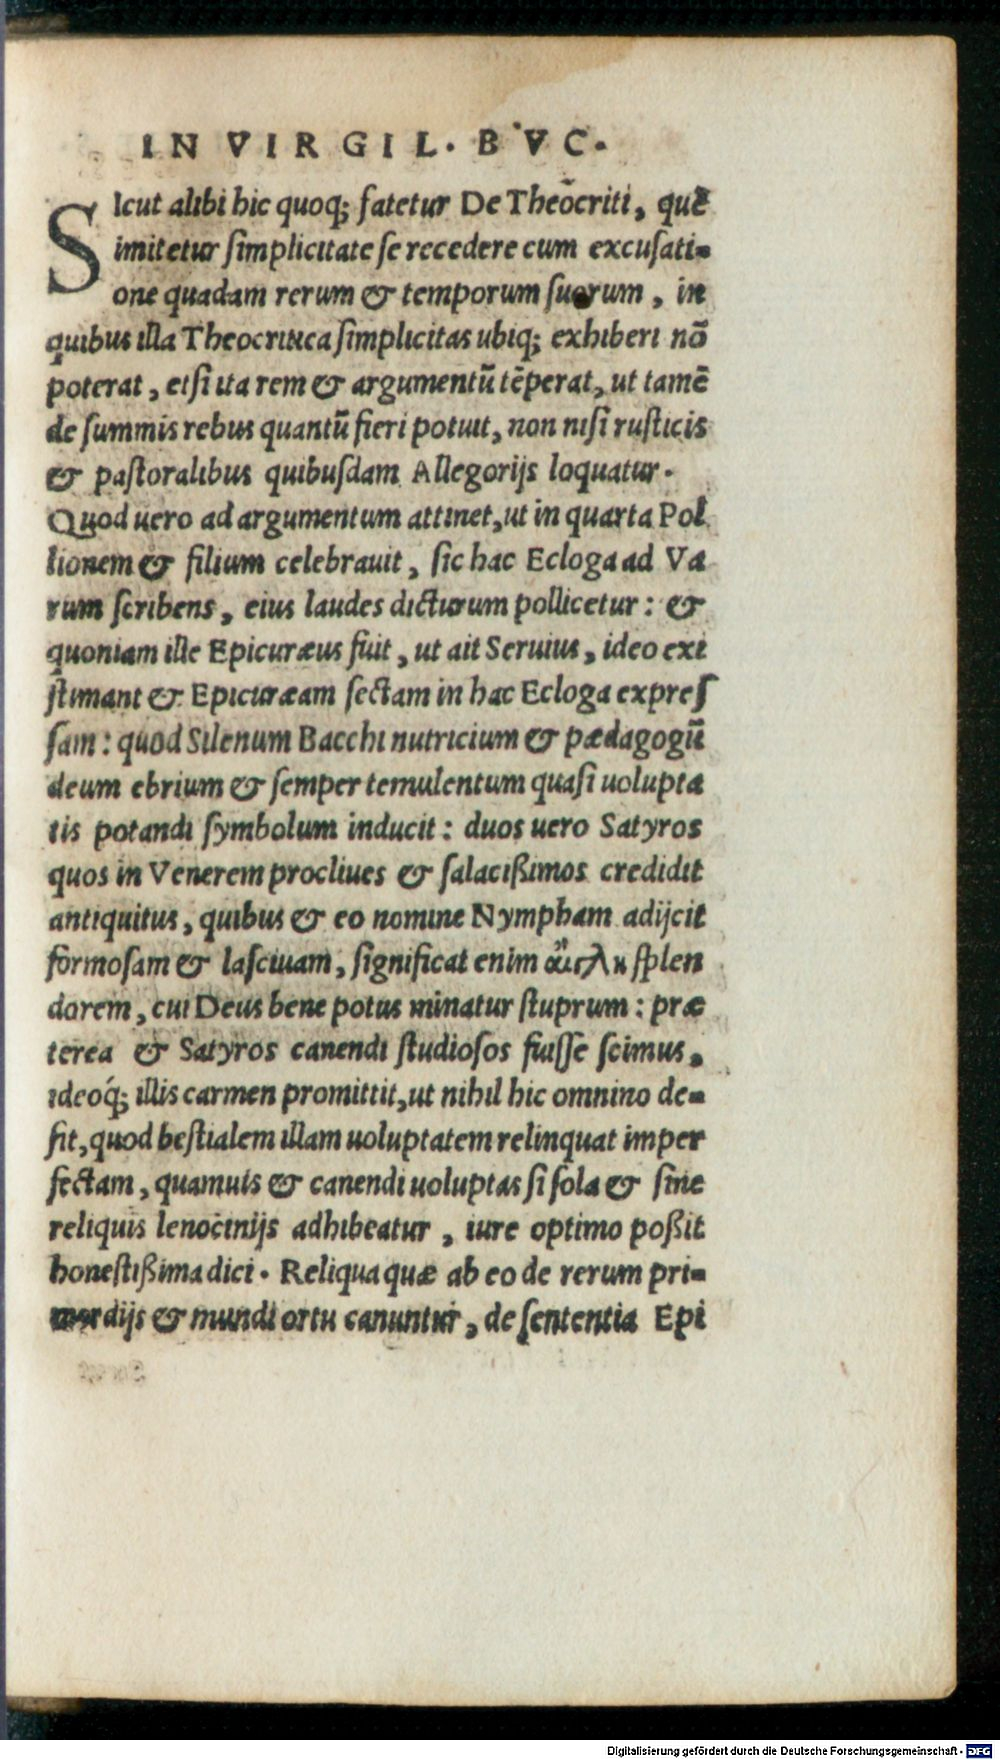 IN VIRGIL. BVC.
SIcut alibi hic quoq; fatetur De Theocriti, quē
imitetur ſimplicitate ſe recedere cum excuſati-
one quadam rerum & temporum ſuorum, in
quibus illa Theocritica ſimplicitas ubiq; exhiberi nō
poterat, etſi ita rem & argumentū tēperat, ut tamē
de ſummis rebus quantū fieri potuit, non niſi ruſticis
& paſtoralibus quibuſdam Allegorijs loquatur.
Quod uero ad argumentum attinet, ut in quarta Pol
lionem & filium celebrauit, ſic hac Ecloga ad Va
rum ſcribens, eius laudes dicturum pollicetur: &
quoniam ille Epicuræus fuit, ut ait Seruius, ideo exi
ſtimant & Epicuræam ſectam in hac Ecloga expreſ
ſam: quod Silenum Bacchi nutricium & pædagogū
deum ebrium & ſemper temulentum quaſi uolupta
tis potandi ſymbolum inducit: duos uero Satyros
quos in Venerem procliues & ſalacißimos credidit
antiquitus, quibus & eo nomine Nympham adijcit
formoſam & laſciuam, ſignificat enim αἴγλη ſplen
dorem, cui Deus bene potus minatur ſtuprum: præ
terea & Satyros canendi ſtudioſos fuiſſe ſcimus,
ideoq́; illis carmen promittit, ut nihil hic omnino de-
ſit, quod beſtialem illam uoluptatem relinquat imper
fectam, quamuis & canendi uoluptas ſi ſola & ſine
reliquis lenocinijs adhibeatur, iure optimo poßit
honeſtißima dici. Reliqua quæ ab eo de rerum pri-
mordijs & mundi ortu canuntur, de ſententia Epi
Digitalisierung gefördert durch die Deutsche Forschungsgemeinschaft - DFG